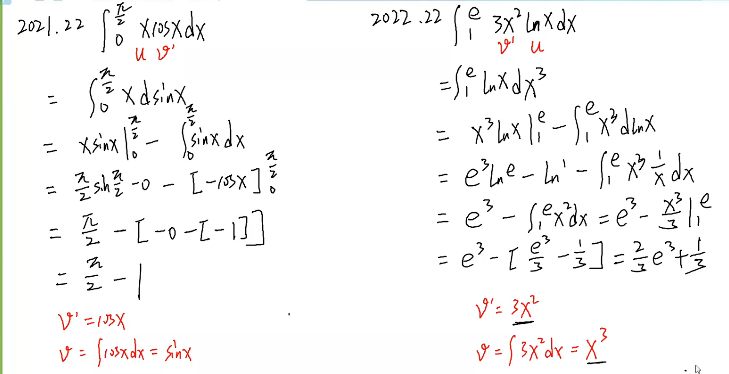 2021.22 ∫₀^{π/2} x cosx dx
u v'
= ∫₀^{π/2} x dsinx
= xsinx |₀^{π/2} - ∫₀^{π/2} sinx dx
= π/2 sin π/2 - 0 - [-cosx]₀^{π/2}
= π/2 - [-0-[-1]]
= π/2 - 1
v' = cosx
v = ∫cosxdx = sinx
2022.22 ∫₁^e 3x² lnx dx
v' u
= ∫₁^e lnx dx³
= x³lnx |₁^e - ∫₁^e x³ dlnx
= e³lne - ln1 - ∫₁^e x³ 1/x dx
= e³ - ∫₁^e x²dx = e³ - x³/3 |₁^e
= e³ - [e³/3 - 1/3] = 2/3 e³ + 1/3
v' = 3x²
v = ∫3x²dx = x³